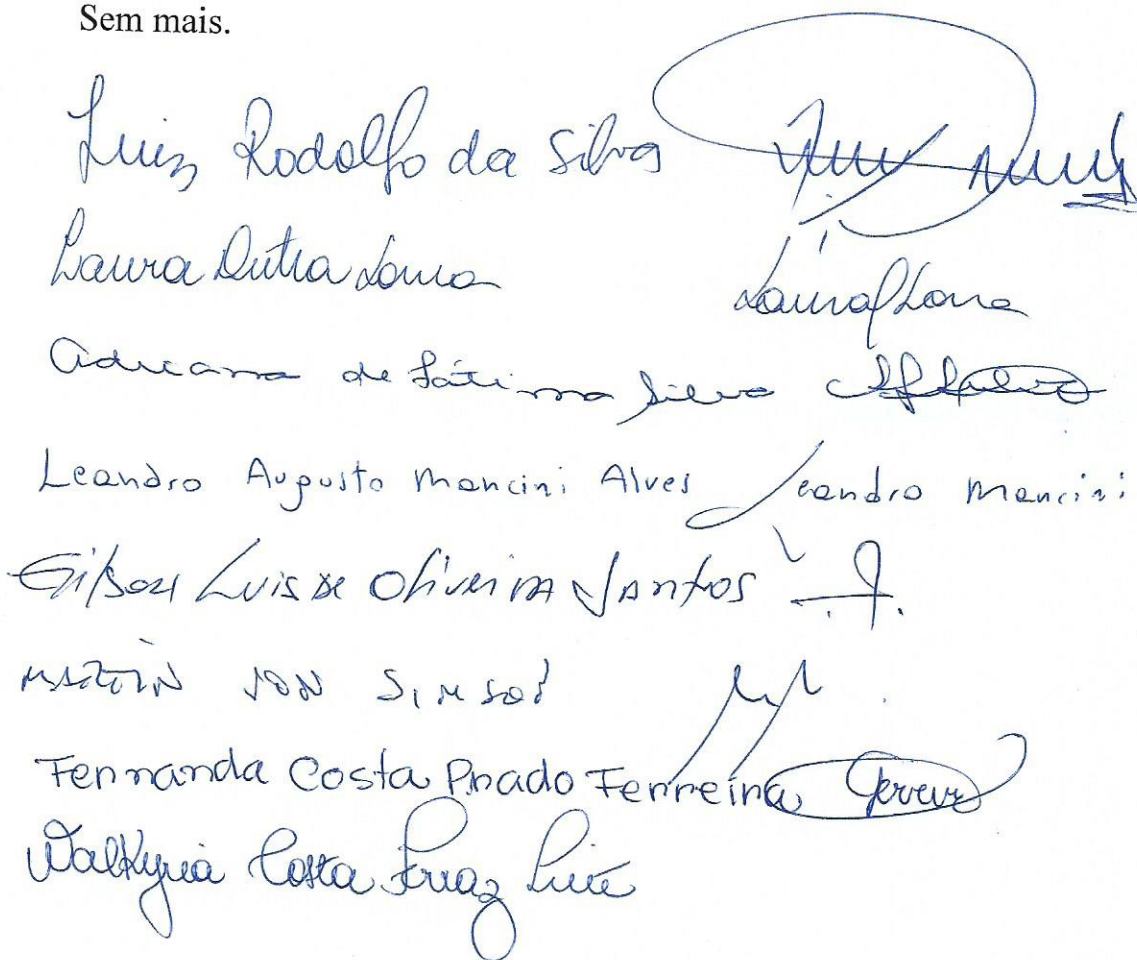 Sem mais.
Luiz Rodolfo da Silva
Laura Dutra
Adriana de Fátima Silva
Leandro Augusto Mancini Alves Leandro Mancini
Gilson Luis de Oliveira Santos
Fernanda Costa Prado Ferreira
Walkyria Costa Ferraz